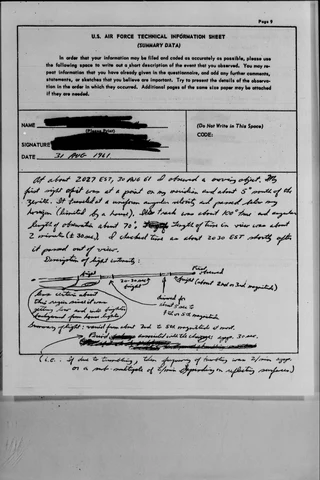 Page 9
U.S. AIR FORCE TECHNICAL INFORMATION SHEET
(SUMMARY DATA)
In order that your information may be filed and coded as accurately as possible, please use
the following space to write out a short description of the event that you observed. You may re-
peat information that you have already given in the questionnaire, and add any further comments,
statements, or sketches that you believe are important. Try to present the details of the observa-
tion in the order in which they occurred. Additional pages of the same size paper may be attached
if they are needed.
NAME
(Please Print)
SIGNATURE
DATE 31 AUG 1961
(Do Not Write in This Space)
CODE:
At about 2027 EST, 30 AUG 61 I observed a moving object. My
first sight of it was at a point on my meridian and about 5° south of the
zenith. It traveled at a uniform angular velocity and passed below my
horizon (limited by a house). Track was about 100° true and angular
length of observation about 70°. Length of time in view was about
2 minutes (± 30 sec). I checked time as about 2030 EST shortly after
it passed out of view.
Description of light intensity:
bright
20-30 sec
bright
Final
observed
bright (about 2nd or 3rd magnitude)
(less certain about
this region since it was
getting low and into brighter
background from house lights)
dimmed for
about 5 sec to
4th or 5th magnitude
Summary of light: varied from about 2nd to 5th magnitude at most.
Period associated with the changes: appx. 30 sec.
(i.e. If due to tumbling, then frequency of tumbling was 2/min appx.
or a sub-multiple of 2/min depending on reflecting surfaces.)